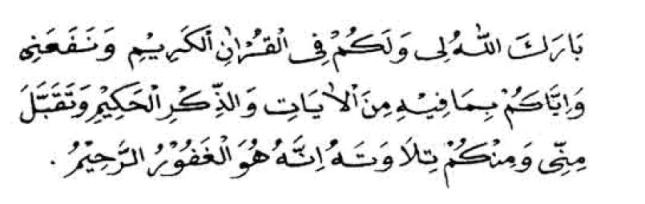 بَارَكَ اللهُ لِى وَلَكُمْ فِى الْقُرْاٰنِ الْكَرِيْمِ وَنَفَعَنِى
وَاِيَّاكُمْ بِمَا فِيْهِ مِنَ الْاٰيَاتِ وَالذِّكْرِ الْحَكِيْمِ وَتَقَبَّلَ
مِنِّى وَمِنْكُمْ تِلَاوَتَهُ اِنَّهُ هُوَ الْغَفُوْرُ الرَّحِيْمُ .